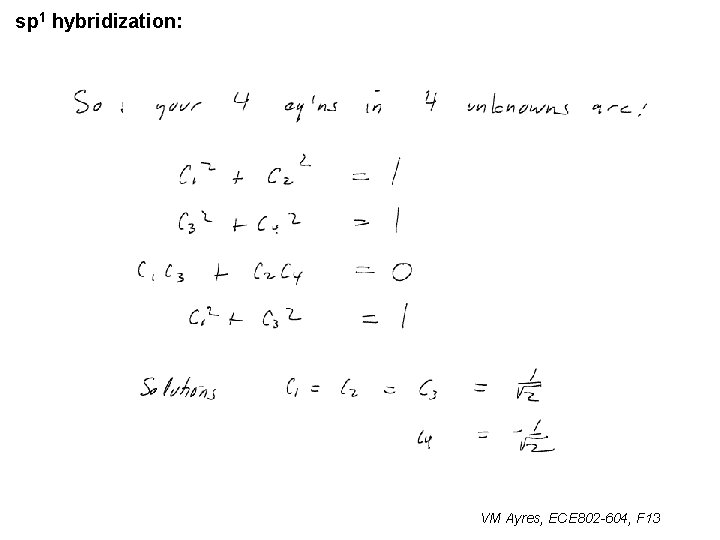 sp¹ hybridization:
So: your 4 eq'ns in 4 unknowns are:
C₁² + C₂² = 1
C₃² + C₄² = 1
C₁C₃ + C₂C₄ = 0
C₁² + C₃² = 1
Solutions C₁ = C₂ = C₃ = 1/√2
C₄ = -1/√2
VM Ayres, ECE802-604, F13